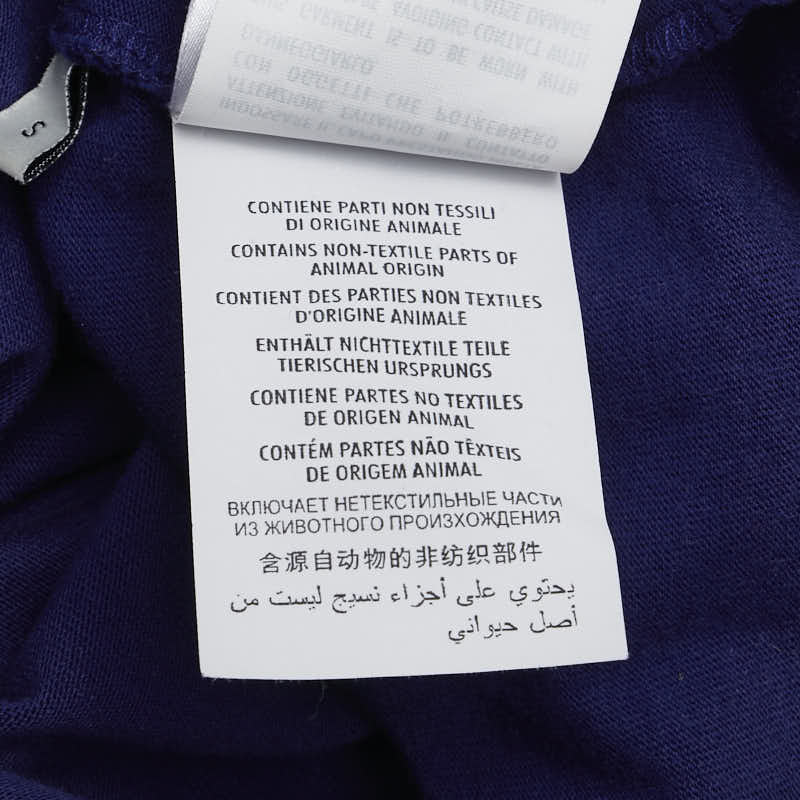 S
INDOSSARE IL CAPO
ATTENZIONE EVITANDO IL CONTATTO
CON OGGETTI CHE POTREBBERO
DANNEGGIARLO
GARMENT IS TO BE WORN WITH
AVOIDING CONTACT WITH
CAUSE DAMAGE
CONTIENE PARTI NON TESSILI
DI ORIGINE ANIMALE
CONTAINS NON-TEXTILE PARTS OF
ANIMAL ORIGIN
CONTIENT DES PARTIES NON TEXTILES
D'ORIGINE ANIMALE
ENTHÄLT NICHTTEXTILE TEILE
TIERISCHEN URSPRUNGS
CONTIENE PARTES NO TEXTILES
DE ORIGEN ANIMAL
CONTÉM PARTES NÃO TÊXTEIS
DE ORIGEM ANIMAL
ВКЛЮЧАЕТ НЕТЕКСТИЛЬНЫЕ ЧАСТИ
ИЗ ЖИВОТНОГО ПРОИЗХОЖДЕНИЯ
含源自动物的非纺织部件
يحتوي على أجزاء نسيج ليست من
أصل حيواني